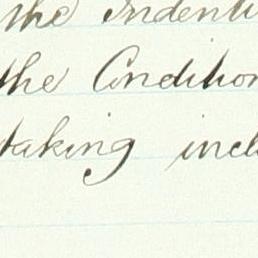 the Indentu
the Condition
taking incl